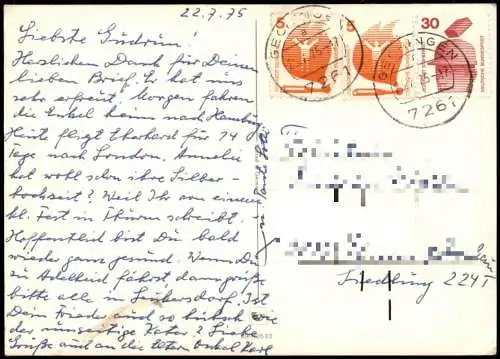 22.7.75
Liebste Gudrun!
Herzlichen Dank für Deinen
lieben Brief. Er hat uns
sehr erfreut. Morgen fahren
die Enkel heim nach Hamburg
Heute fliegt Eberhard für 14
Tage nach London. Annelie
hat wohl schon ihre Silber-
hochzeit? Weil Ihr von einem
bl. Fest in Thürm schreibt.
Hoffentlich bist Du bald
wieder ganz gesund. Wenn Du
zu Adelheid fährst dann grüße
bitte alle in Ist
Dein Friede auch so hübsch wie
der umseitige Kater? Liebe
Grüße auch an die Onkel Karl
5
5
30
DEUTSCHE BUNDESPOST
GECHINGEN
7261
GECHINGEN
7261
Siedlung 224